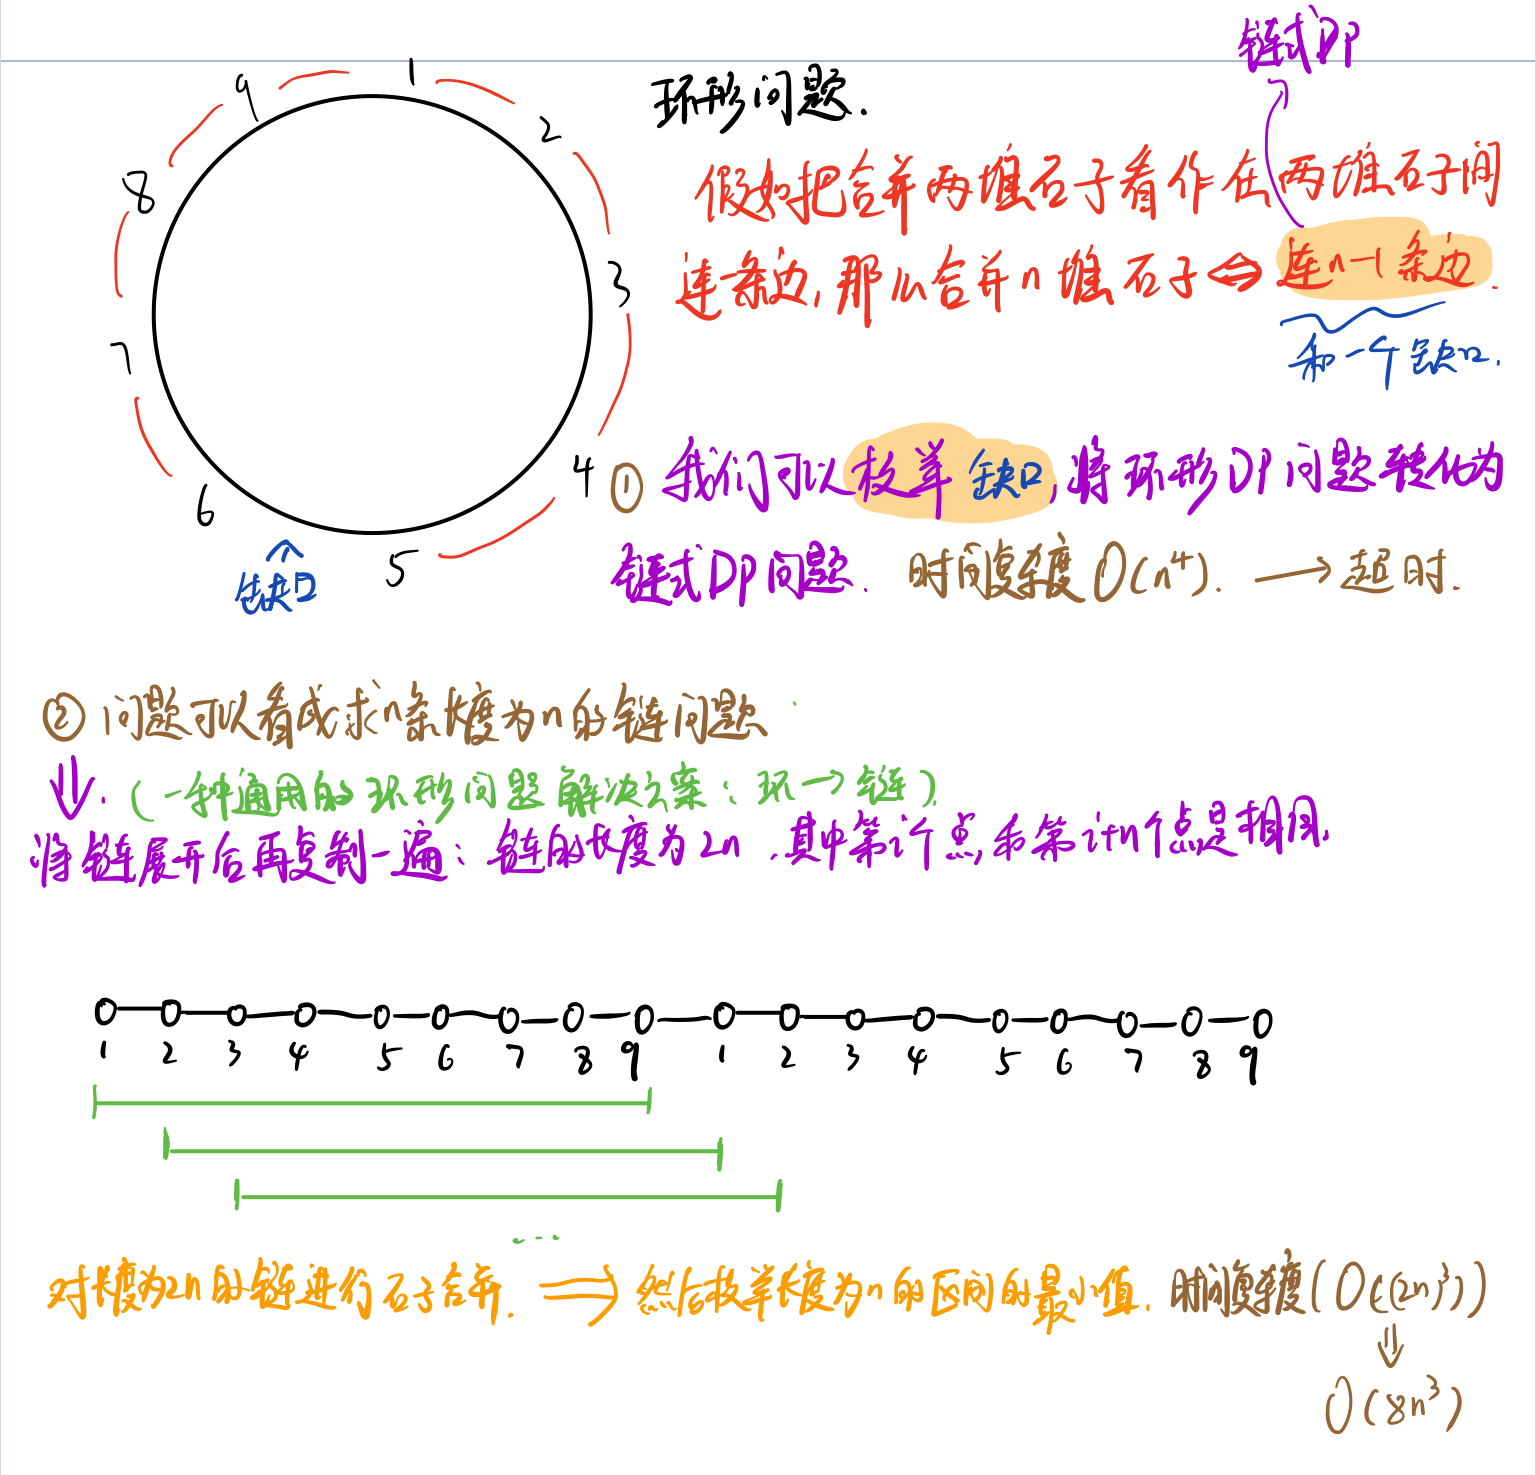 链式DP
环形问题.
假如把合并两堆石子看作在两堆石子间
连一条边,那么合并n堆石子⇔连n-1条边.
和一个缺口.
1
2
3
4
5
6
7
8
9
缺口
① 我们可以枚举缺口,将环形DP问题转化为
链式DP问题. 时间复杂度O(n⁴). → 超时.
② 问题可以看成求n条长度为n的链问题
⇓.(一种通用的环形问题解决方案:环→链)
将链展开后再复制一遍:链的长度为2n,其中第i个点和第i+n个点是相同.
1 2 3 4 5 6 7 8 9 1 2 3 4 5 6 7 8 9
...
对长度为2n的链进行石子合并. ⇒ 然后枚举长度为n的区间的最小值. 时间复杂度(O((2n)³))
⇓
O(8n³)